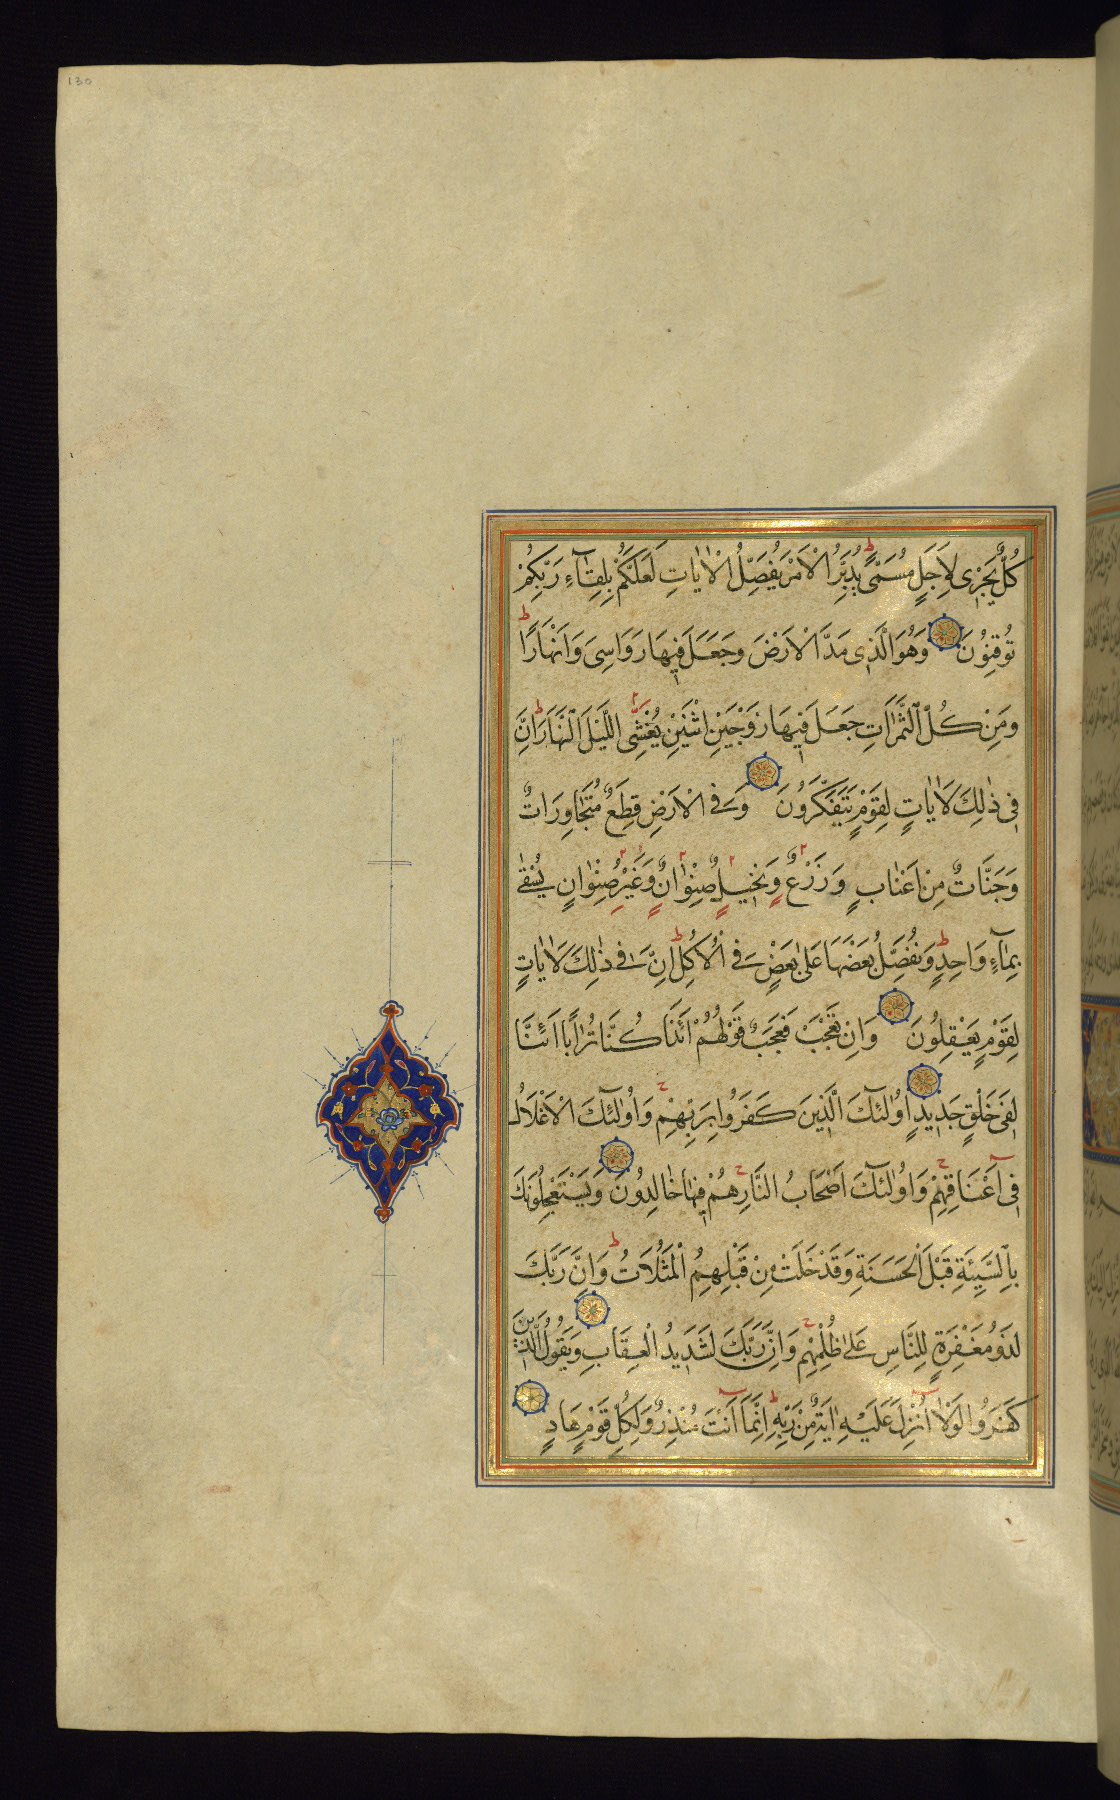 130
كُلٌّ يَجْرِى لِاَجَلٍ مُسَمًّىۜ ط يُدَبِّرُ الْاَمْرَ يُفَصِّلُ الْاٰيَاتِ لَعَلَّكُمْ بِلِقَٓاءِ رَبِّكُمْ
تُوقِنُونَ وَهُوَ الَّذِى مَدَّ الْاَرْضَ وَجَعَلَ فِيهَا رَوَاسِىَ وَاَنْهَارًا ط
وَمِنْ كُلِّ الثَّمَرَاتِ جَعَلَ فِيهَا زَوْجَيْنِ اثْنَيْنِ يُغْشِى اللَّيْلَ النَّهَارَ ط اِنَّ
فِى ذٰلِكَ لَاٰيَاتٍ لِقَوْمٍ يَتَفَكَّرُونَ وَفِى الْاَرْضِ قِطَعٌ مُتَجَاوِرَاتٌ
وَجَنَّاتٌ مِنْ اَعْنَابٍ وَزَرْعٌ وَنَخِيلٌ صِنْوَانٌ وَغَيْرُ صِنْوَانٍ يُسْقٰى
بِمَٓاءٍ وَاحِدٍ ط وَنُفَضِّلُ بَعْضَهَا عَلٰى بَعْضٍ فِى الْاُكُلِ ط اِنَّ فِى ذٰلِكَ لَاٰيَاتٍ
لِقَوْمٍ يَعْقِلُونَ وَاِنْ تَعْجَبْ فَعَجَبٌ قَوْلُهُمْ اَئِذَا كُنَّا تُرَابًا اَئِنَّا
لَفِى خَلْقٍ جَدِيدٍ اُولٰٓئِكَ الَّذِينَ كَفَرُوا بِرَبِّهِمْ ج وَاُولٰٓئِكَ الْاَغْلَالُ
فِٓى اَعْنَاقِهِمْ ج وَاُولٰٓئِكَ اَصْحَابُ النَّارِ ج هُمْ فِيهَا خَالِدُونَ وَيَسْتَعْجِلُونَكَ
بِالسَّيِّئَةِ قَبْلَ الْحَسَنَةِ وَقَدْ خَلَتْ مِنْ قَبْلِهِمُ الْمَثُلَاتُ ط وَاِنَّ رَبَّكَ
لَذُو مَغْفِرَةٍ لِلنَّاسِ عَلٰى ظُلْمِهِمْ ج وَاِنَّ رَبَّكَ لَشَدِيدُ الْعِقَابِ وَيَقُولُ الَّذِينَ
كَفَرُوا لَوْلَٓا اُنْزِلَ عَلَيْهِ اٰيَةٌ مِنْ رَبِّهِ ط اِنَّمَٓا اَنْتَ مُنْذِرٌ وَلِكُلِّ قَوْمٍ هَادٍ